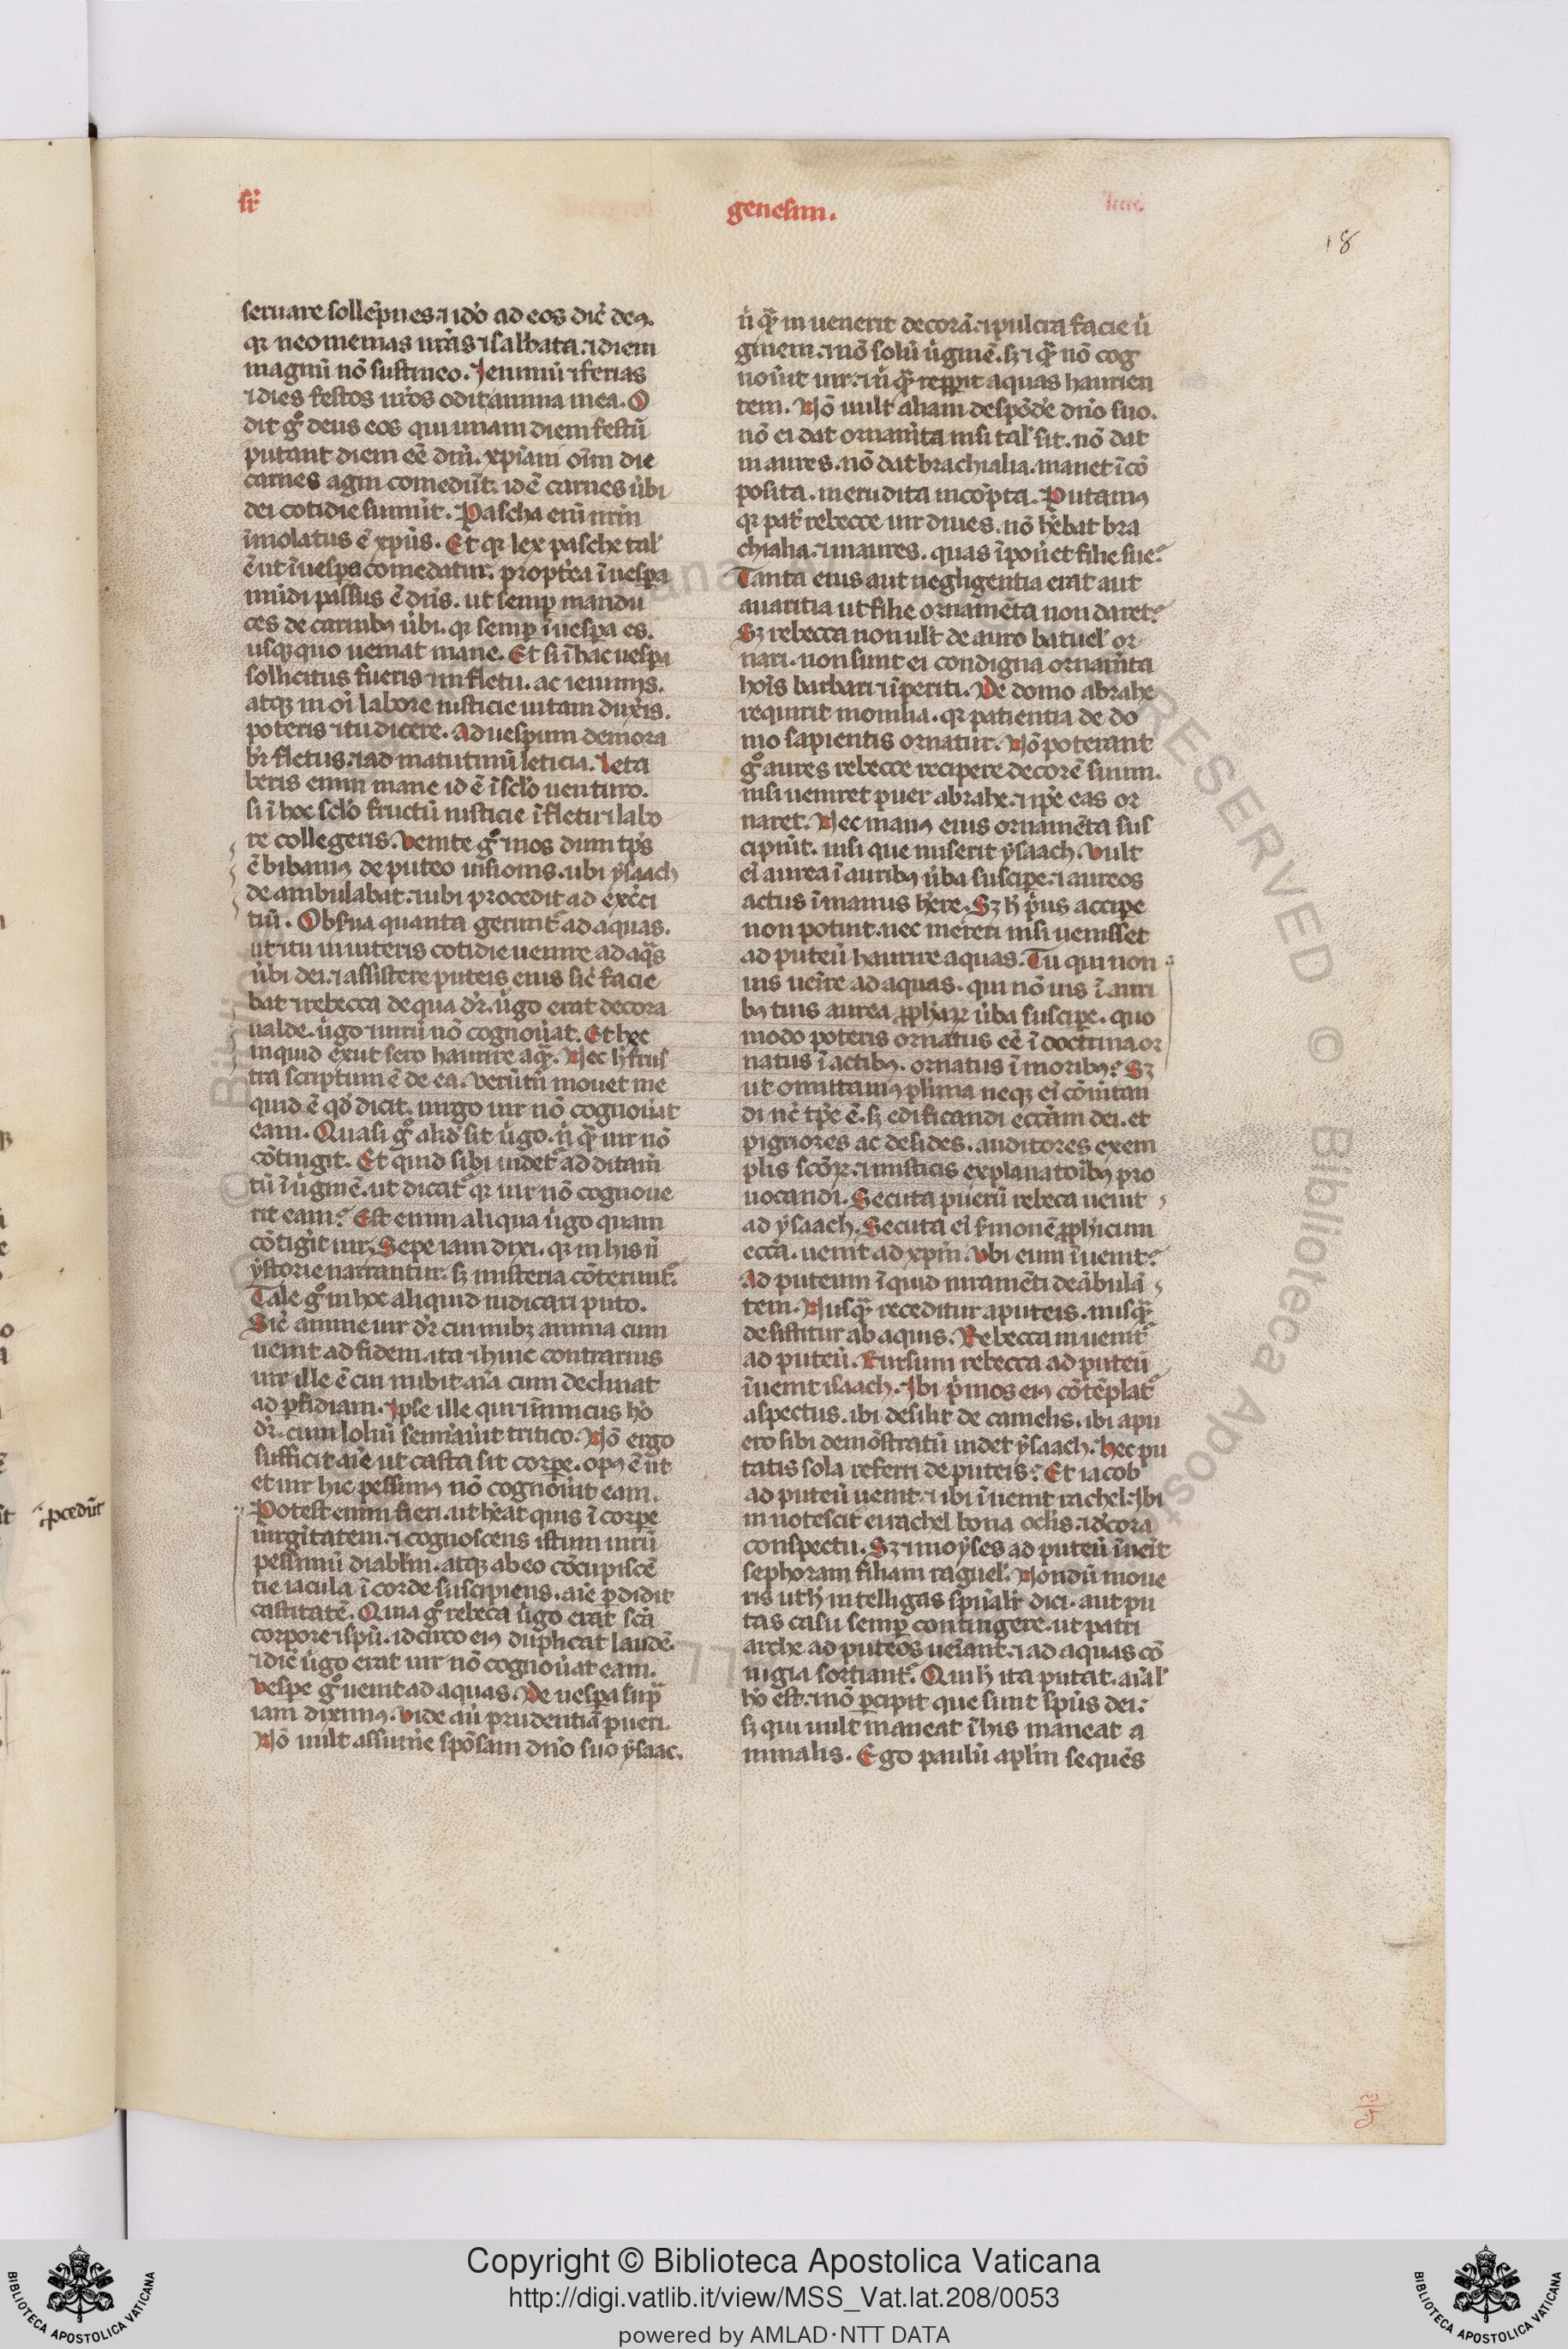 sr̃
genesim.
18
seruare sollẽpnes. ⁊ iđo ad eos dic̃ deꝰ.
qꝛ neomenias ur̃as ⁊ sabbata. ⁊ diem
magnũ nõ sustineo. Ieiuniũ ⁊ ferias
⁊ dies festos ur̃os odit anima mea. O
dit gͦ deus eos qui unam diem festũ
putant diem eẽ dñi. xp̃iani oĩm die
carnes agni comedũt. id ẽ carnes ũbi
dei cotidie sumũt. Pascha eni nr̃m
ĩmolatus ẽ xp̃us. Et qꝛ lex pasche tal̃
ẽ ut ĩ uesꝑa comedatur. propt̃ea ĩ uesꝑa
mũdi passus ẽ dñs. ut semꝑ mandu
ces de carnibꝰ ũbi. qꝛ semꝑ ĩ uesꝑa es.
usqꝫ quo ueniat mane. Et si ĩ hac uesꝑa
sollicitus fueris ⁊ in fletu. ac ieiuniis.
atqꝫ in oĩ labore iusticie uitam dux̃is.
poteris ⁊ tu dicere. Ad uesꝑum demora
bĩr fletus. ⁊ ad matutinũ leticia. Leta
beris enim mane id ẽ ĩ sc̃lo uenturo.
si ĩ hoc sc̃lo fructũ iusticie ĩ fletu ⁊ labo
re collegeris. Venite gͦ ⁊ nos dum tp̃s
ẽ bibamꝰ de puteo uisionis. ubi ysaach
de ambulabat. ⁊ ubi procedit ad exc̃i
tiũ. Obsẽua quanta gerunt᷑ ad aquas.
ut ⁊ tu inuiteris cotidie uenire ad aq̃s
ũbi dei. ⁊ assistere puteis eius sic̃ facie
bat ⁊ rebecca de qua dr̃. ũgo erat decora
ualde. ũgo ⁊ uirũ nõ cognoũat. Et hec
inquid exiit sero haurire aq̃. Nec h̃ frus
tra scriptum ẽ de ea. Verũtñ mouet me
quid ẽ qđ dicit. uirgo uir nõ cognouat
eam. Quasi gͦ aliđ sit ũgo. ñ q̃ uir nõ
cõtingit. Et quid sibi uidet᷑ additam̃
tũ ĩ ũgine. ut dicat᷑ qꝛ uir nõ cognoue
rit eam? Est enim aliqua ũgo quam
cõtigit uir. Sepe iam dixi. qꝛ in his ñ
ystorie narrantur. sꝫ misteria cõterunt᷑.
Tale gͦ in hoc aliquid iudicari puto.
Sic̃ anime uir dr̃ cui nubꝫ anima cum
uenit ad fidem. ita ⁊ huic contrarius
uir ille ẽ cui nubit aĩa cum declinat
ad ꝑfidiam. Ipse ille qui ⁊ inimicus hõ
dr̃. cum loliũ seminaũit tritico. Nõ ergo
sufficit aĩe ut casta sit corꝑe. opꝰ ẽ ut
et uir hic pessimꝰ nõ cognoũit eam.
Potest enim fieri. ut h̃eat quis ĩ corꝑe
uirgitatem. ⁊ cognoscens istum uirũ
pessimũ diabl̃m. atqꝫ ab eo cõcupiscẽ
tie iacula ĩ corde suscipiens. aĩe ꝑdidit
castitatẽ. Quia gͦ rebeca ũgo erat sc̃a
corpore ⁊ spũ. idcirco eiꝰ duplicat laudẽ.
⁊ dic̃ ũgo erat uir nõ cognoũat eam.
Vesꝑe gͦ uenit ad aquas. De uesꝑa sup̃
iam diximꝰ. Vide aũ prudentiã pueri.
Nõ uult assum̃e spõsam dño suo ysaac.
ꝓcedũt
ñ q̃ inuenerit decorã. ⁊ pulcra facie ũ
ginem. ⁊ nõ solũ ũginẽ. sꝫ ⁊ q̃ nõ cog
noũit uir. ⁊ ñ q̃ reꝑꝑit aquas haurien
tem. Nõ uult aliam despõde dño suo.
nõ ei dat ornam̃ta nisi tal̃ sit. nõ dat
inaures. nõ dat brachialia. manet ĩ cõ
posita. inerudita incõpta. Putamꝰ
qꝛ pat̃ rebecce uir diues. nõ h̃ebat bra
chialia. ⁊ inaures. quas ĩpoñet filie sue?
Tanta eius aut negligentia erat aut
auaritia ut filie ornamẽta non daret?
Sꝫ rebecca non ult de auro batuel or
nari. non sunt ei condigna ornam̃ta
hoĩs barbari ⁊ ĩperiti. De domo abrahe
requirit monilia. qꝛ patientia de do
mo sapientis ornatur. Nõ poterant
gͦ aures rebecce recipere decorẽ suum.
nisi ueniret puer abrahe. ⁊ ip̃e eas or
naret. Nec manꝰ eius ornamẽta sus
cipiũt. nisi que miserit ysaach. Vult
eĩ aurea ĩ auribꝰ ũba suscipe. ⁊ aureos
actus ĩ manus h̃ere. Sꝫ h̃ p̃us accipe
non potuit. nec mereri nisi uenisset
ad puteũ haurire aquas. Tu qui non
uis ueñire ad aquas. qui nõ uis ĩ auri
bꝰ tuis aurea ꝓph̃aꝝ ũba suscipe. quo
modo poteris ornatus eẽ ĩ doctrina or
natus ĩ actibꝰ. ornatus ĩ moribꝰ? Sꝫ
ut omittamꝰ pl̃ima neqꝫ eĩ cõm̃tan
di nc̃ tp̃e ẽ. sꝫ edificandi ecc̃am dei. et
pigriores ac desides. auditores exem
plis sc̃oꝝ. ⁊ misticis explanatoĩbꝰ pro
uocandi. Secuta puerũ rebeca uenit
ad ysaach. Secuta eĩ ẽmonẽ ꝓph̃icum
ecc̃a. uenit ad xp̃m. Vbi eum ĩuenit?
Ad puteum ĩquid iuramẽti deãbulã
tem. Nusq̃ receditur a puteis. nusq̃
desistitur ab aquis. Rebecca inuenit᷑
ad puteũ. Rursum rebecca ad puteũ
ĩuenit isaach. Ibi p̃mos eiꝰ cõtẽplat᷑
aspectus. ibi desilit de camelis. ibi a pu
ero sibi demõstratũ uidet ysaach. Hec pu
tatis sola referri de puteis? Et iacob
ad puteũ uenit. ⁊ ibi ĩuenit rachel. Ibi
innotescit ei rachel bona oc̃lis. ⁊ đcora
conspectu. Sꝫ ⁊ moyses ad puteũ ĩueĩt
sephoram filiam raguel. Nondũ moue
ris ut h̃ intelligas spũal̃r dici. aut pu
tas casu semꝑ contingere. ut patri
arche ad puteos ueĩant. ⁊ ad aquas cõ
iugia sortiant᷑. Qui h̃ ita putat. aĩal̃
hõ est. ⁊ nõ ꝑcipit que sunt spũs dei.
sꝫ qui uult maneat ĩ his maneat a
nimalis. Ego paulũ apl̃m sequẽs
Copyright © Biblioteca Apostolica Vaticana
http://digi.vatlib.it/view/MSS_Vat.lat.208/0053
powered by AMLAD·NTT DATA
BIBLIOTECA APOSTOLICA VATICANA
BIBLIOTECA APOSTOLICA VATICANA